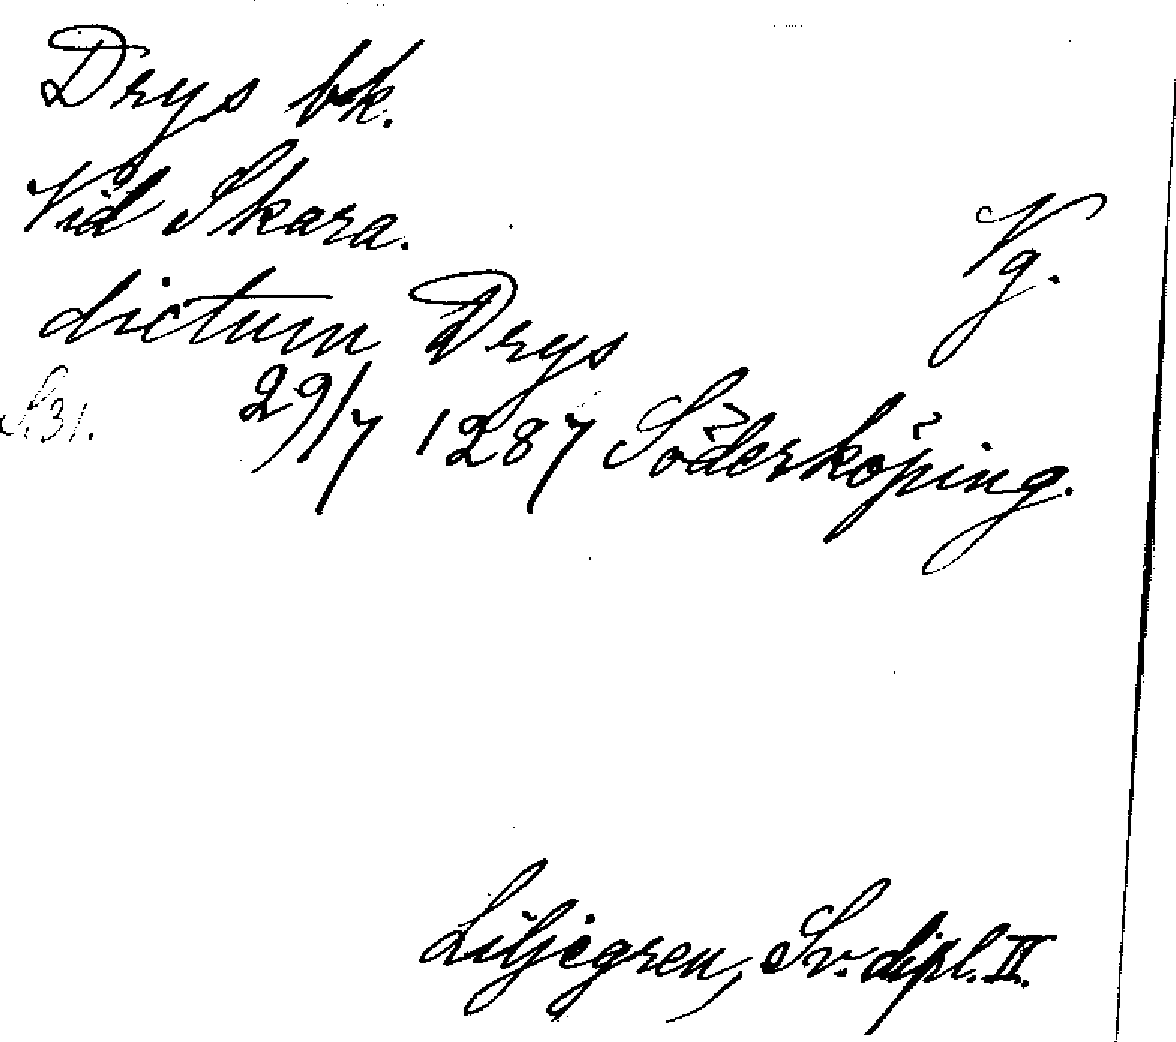 Drys bk.
Vid Skara. Vg.
dictum Drys
S. 31. 29/7 1287 Söderköping.
Liljegren, Sv. dipl. II.